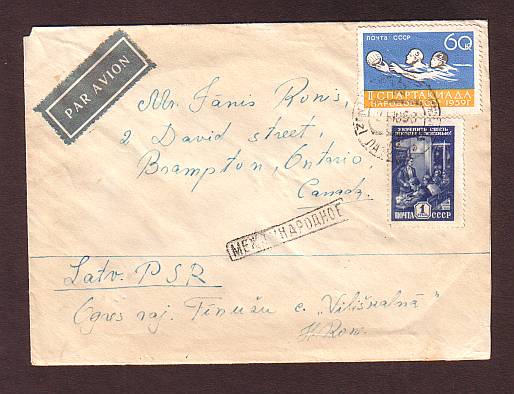 PAR AVION
ПОЧТА СССР
60к
II СПАРТАКИАДА
НАРОДОВ СССР 1959г
Mr. Jānis Ronis,
2 David street,
Brampton, Ontario
Canada.
УКРЕПИТЬ СВЯЗЬ
ПОЧТА 1 СССР
МЕЖДУНАРОДНОЕ
Latv. PSR
Ogres raj. Tīnūžu c. „Vilišķalnā"